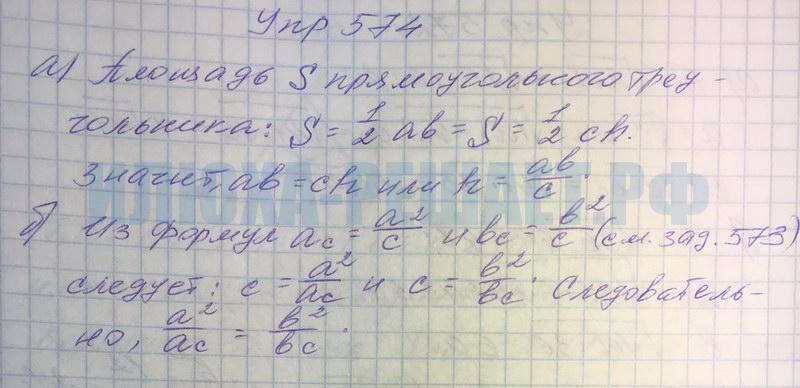 Упр 574
а) Площадь S прямоугольного треу-
гольника: S = 1/2 ab = S = 1/2 ch.
Значит, ab = ch или h = ab/c.
б) Из формул a_c = a²/c и b_c = b²/c (см. зад. 573)
следует: c = a²/a_c и c = b²/b_c. Следователь-
но, a²/a_c = b²/b_c.
ИЛЮХА-РЕШАЕТ.РФ